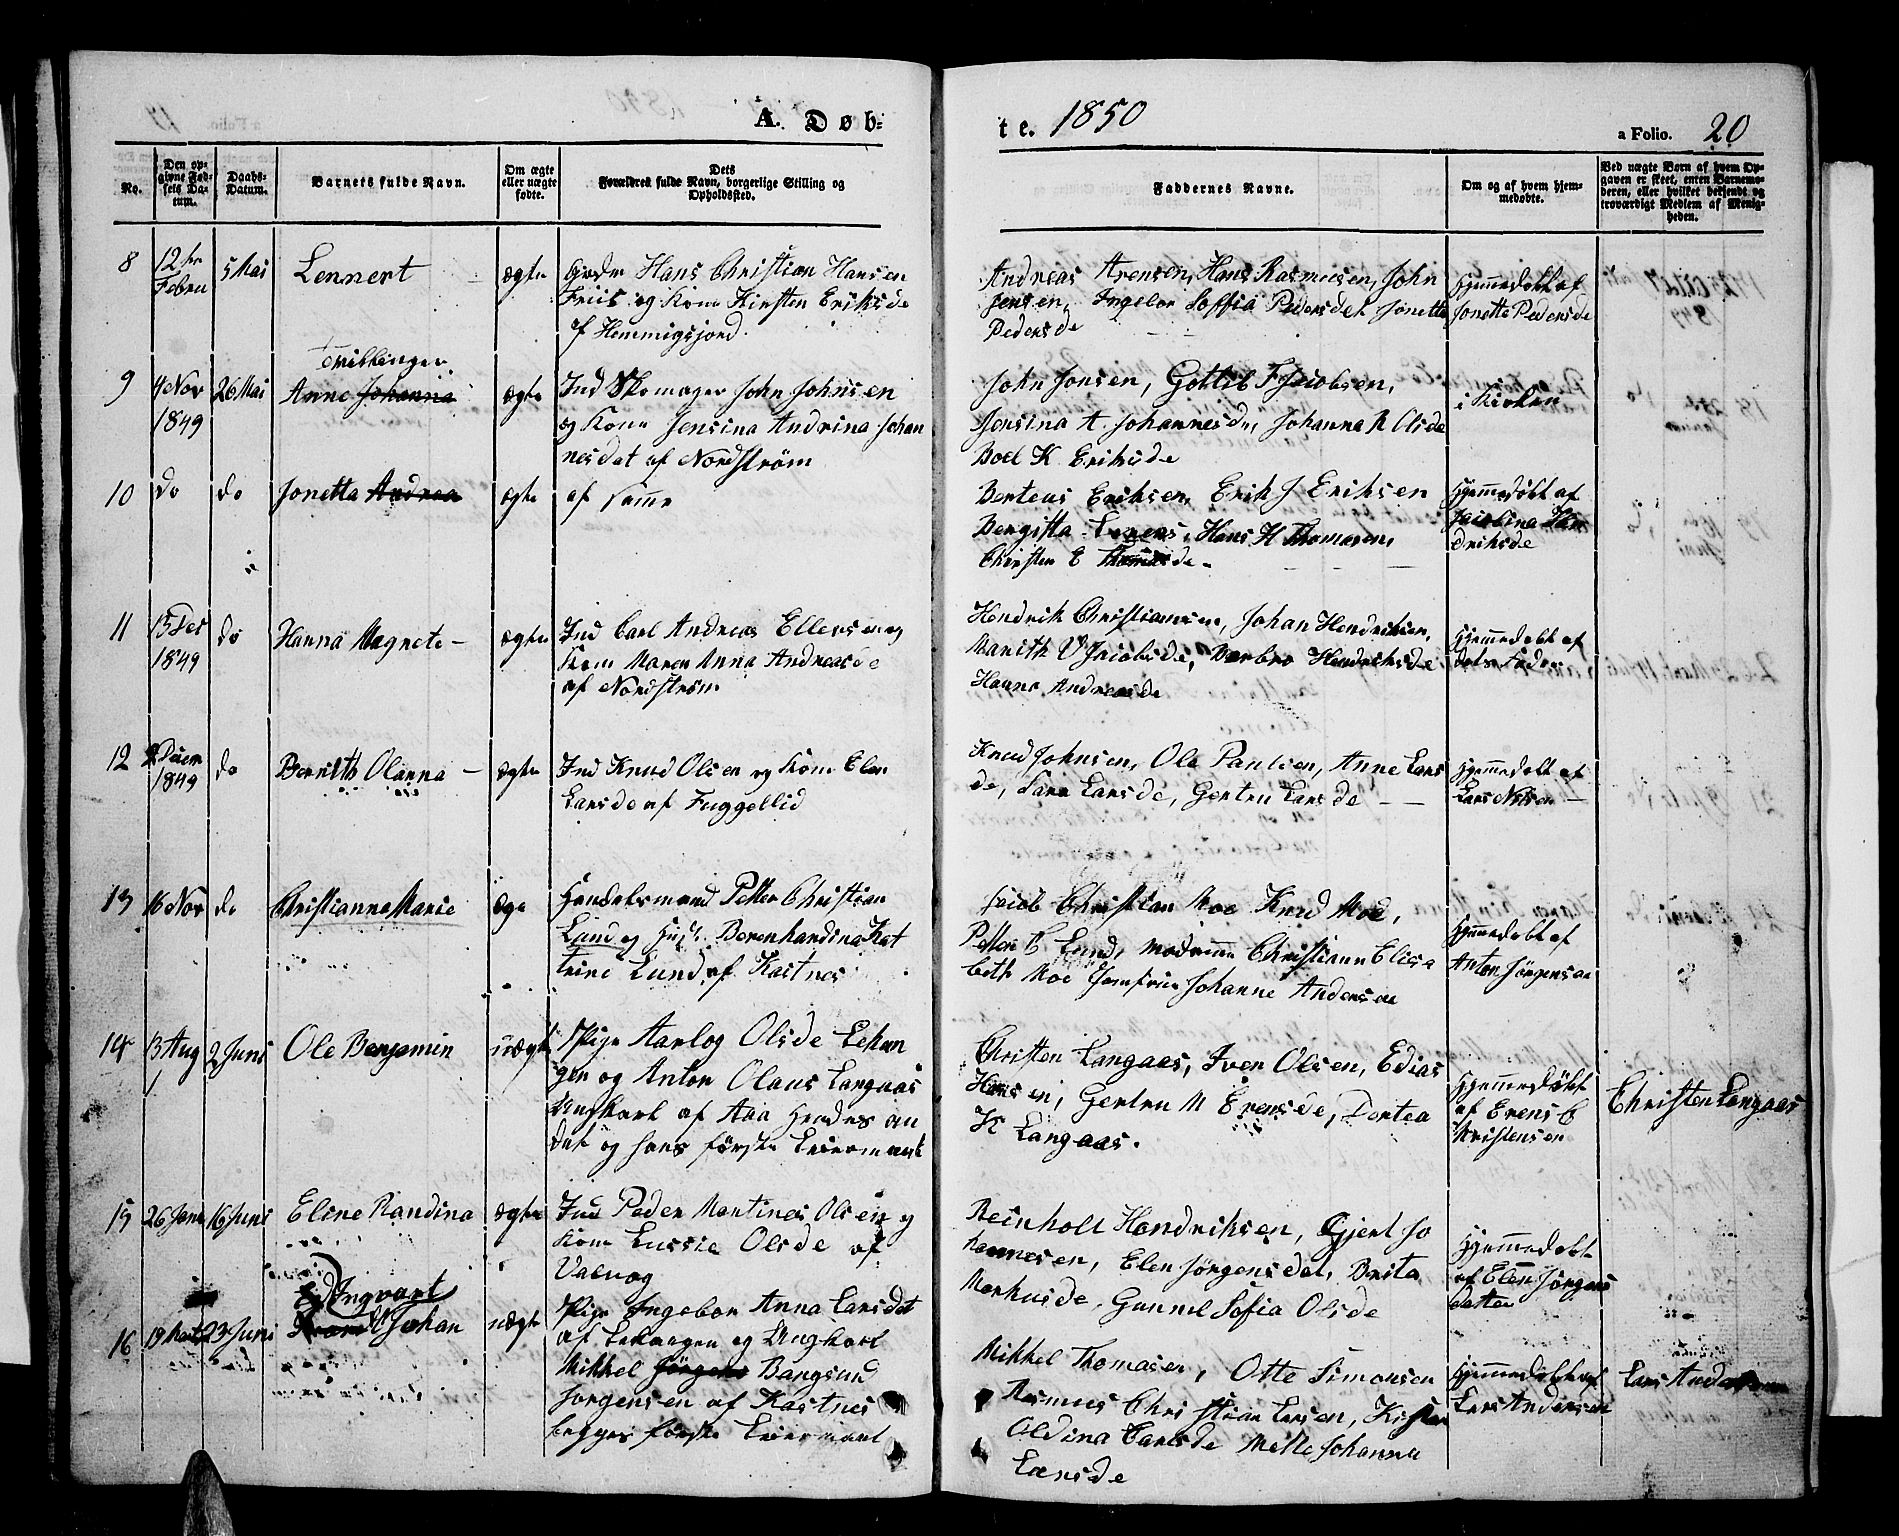 A. Døb-
te. 1850
a Folio. 20
No.
Den op-
givne Fød-
sels Da-
tum.
Daabs-
Datum.
Barnets fulde Navn.
Om ægte
eller uægte
fødte.
Dets
Forældres fulde Navn, borgerlige Stilling og
Opholdssted.
Faddernes Navne.
Om og af hvem hjem-
medøbte.
Ved uægte Børn af hvem Op-
gaven er skeet, enten Barnemo-
deren, eller hvilket bekjendt og
troværdigt Medlem af Menig-
heden.
8 12te Febru 5 Mai Lennert ægte
Hans Christian Hansen
Friis og Kone Kirsten Eriksde
af Hemmigsjord.
Andreas Arensen, Hans Rasmusen, John
Jensen, Ingebor Soffia Pedersdet Jonetta
Pedersde
Hjemmedøbt af
Jonetta Pedersde
Tvillinger
9 4 Nov 1849 26 Mai Anne Johanna ægte
Ind Skomager John Johnsen
og Kone Jensina Andrina Johan
nesdet af Nordstrøm
John Jonsen, Gotlib F Jacobsen,
Jensina A. Johannesde, Johanna R Olsde
Boel K. Eriksde
i Kirken
10 do do Jonetta Andrea ægte af samme
Berteus Eriksen, Erik J Eriksen
Bergitta Larens, Hans H Thomasen,
Christen E Thomasde -
Hjemmedøbt af
Jacobina Hen
driksde
11 15 Des 1849 do Hanna Magrete - ægte
Ind Carl Andreas Ellersen og
Kone Maren Anna Andreasde
af Nordstrøm
Hendrik Christiansen, Johan Hendriksen,
Marith V Jacobsde, Barbro Hendriksde
Hanna Andreasde
Hjemmedøbt af
dets Fader
12 Decem 1849 do Bernith Olanna - ægte
Ind Knud Olsen og Kone Elen
Larsde af Fuggellid
Knud Johnsen, Ole Paulsen, Anne Lars
de, Sara Larsde, Gertru Larsde - -
Hjemmedøbt af
Lars Nilsen -
13 16 Nov do Christianna Marie ægte
Handelsmand Petter Christian
Lund og Hust. Berenhardina Kat
trine Lund af Kastnes
Jacob Christian Moe Knud Moe,
Petter B Lund, Christiann Elisa
beth Moe Jomfrue Johanne Andersen
Hjemmedøbt af
Anton Jörgensen
14 13 Aug 2 Juni Ole Benjamin uægte
Pige Aarlog Olsde Lekan
gen og Anton Olaus Langaas
Ungkarl af Aaa Hendes an
det og hans förste Leiermaal
Christen Langaas, Iver Olsen, Edias
Hansen, Gertru M Erensde, Dortea
K Langaas.
Hjemmedöbt
af Erens C
Kristensen
Christen Langaas
15 26 Janu 16 Juni Eline Randina ægte
Ind Peder Martines Olsen og
Kone Lussie Olsde af
Valvog
Reinholt Hendriksen, Gjert Jo
hannesen, Elen Jörgensdet, Berita
Markusde, Gunnel Sofia Olsde
Hjemmedøbt
af Elen Jörgens
datter
16 19 Marts 23 Juni Ingvart Johan uægte
Pige Ingebor Anna Larsdet
af Lekangen og Ungkarl
Mikkel Jörgens Bangsund
Jorgensen af Kastnes
begges förste Leiermaal
Mikkel Thomasen, Otte Simonsen
Rasmus Christian Larsen, Kisten
Oldina Carlsde Mette Johanna
Larsde
Hjemmedøbt af
Lars Andersen
Lars Andersen